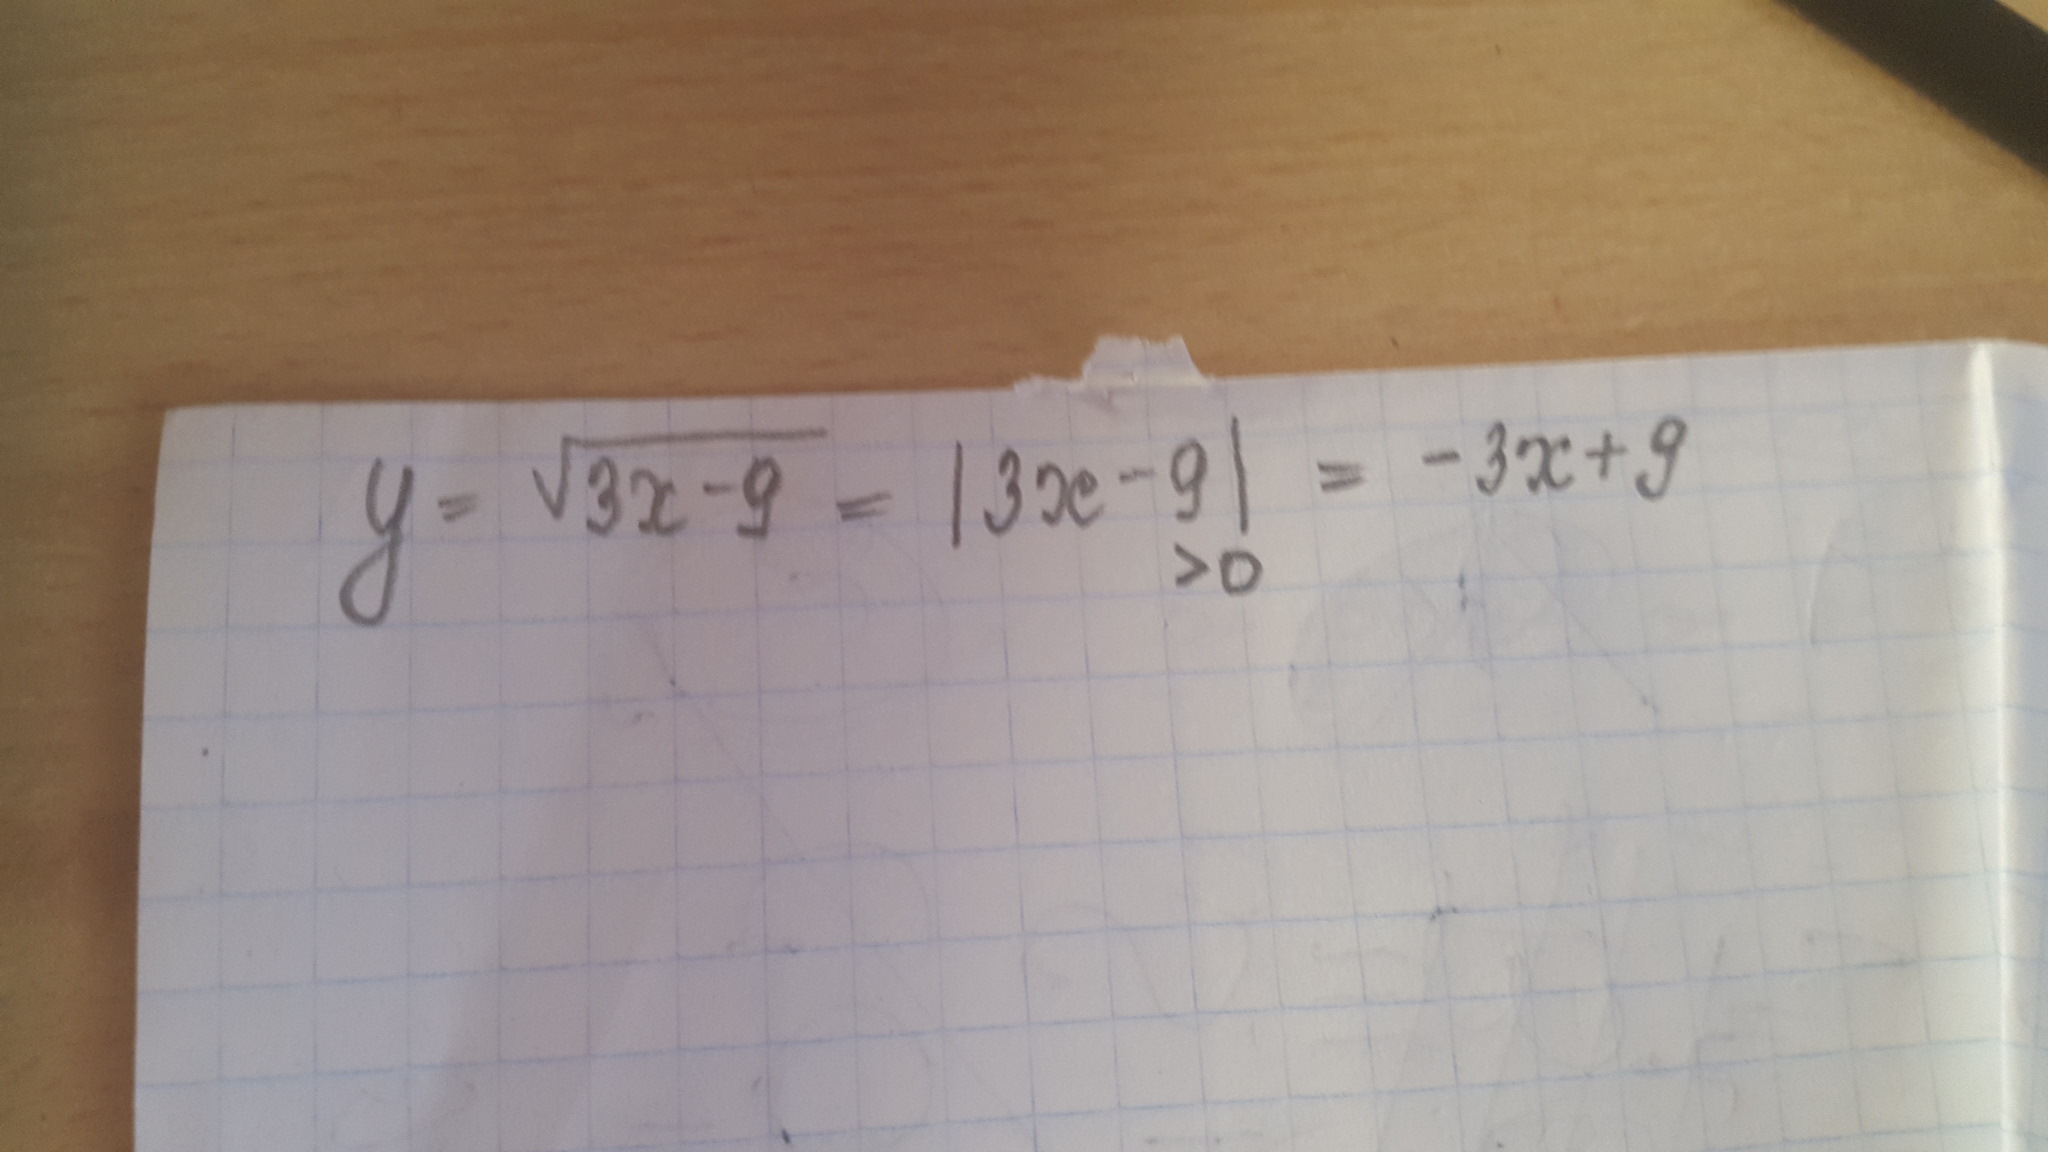 y = √3x-9 = |3x-9| = -3x+9
>0